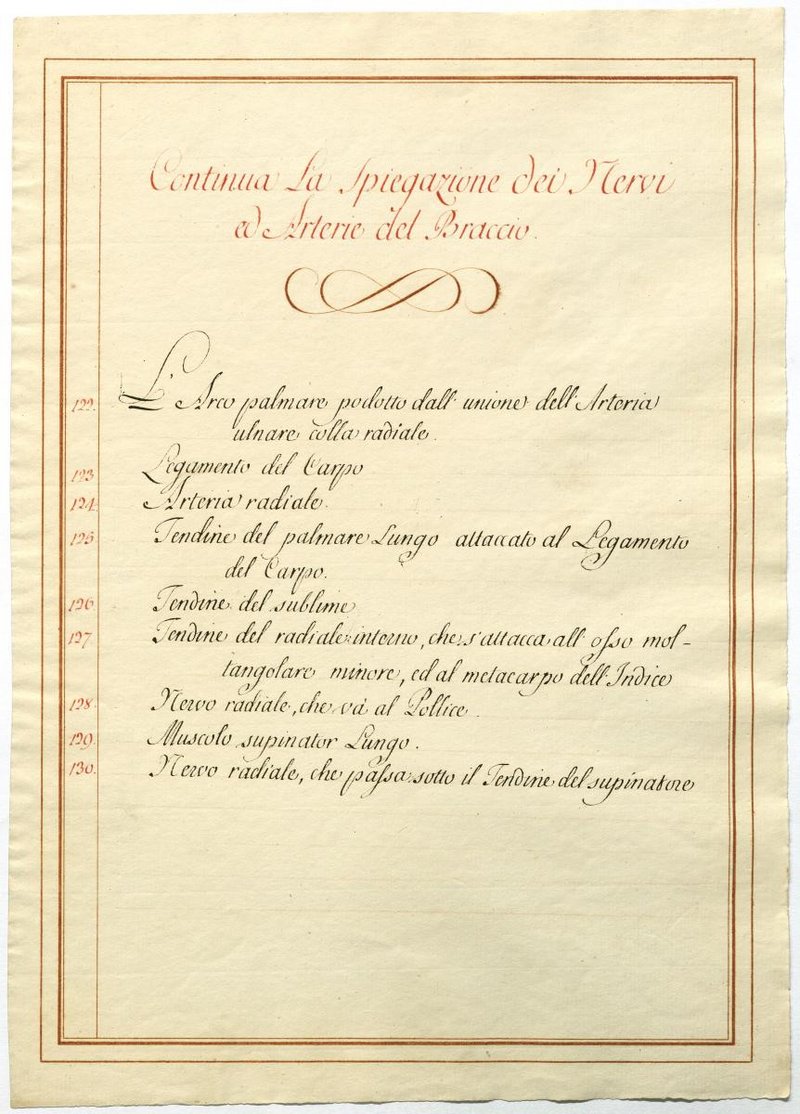 Continua La Spiegazione dei Nervi
ed Arterie del Braccio.
122. L' Arco palmare podotto dall' unione dell' Arteria
ulnare colla radiale.
123 Legamento del Carpo
124. Arteria radiale.
125. Tendine del palmare Lungo attaccato al Legamento
del Carpo.
126 Tendine del sublime
127. Tendine del radiale interno, che s'attacca all' osso mol-
tangolare minore, ed al metacarpo dell' Indice
128. Nervo radiale, che và al Pollice.
129. Muscolo supinator Lungo.
130. Nervo radiale, che passa sotto il Tendine del supinatore